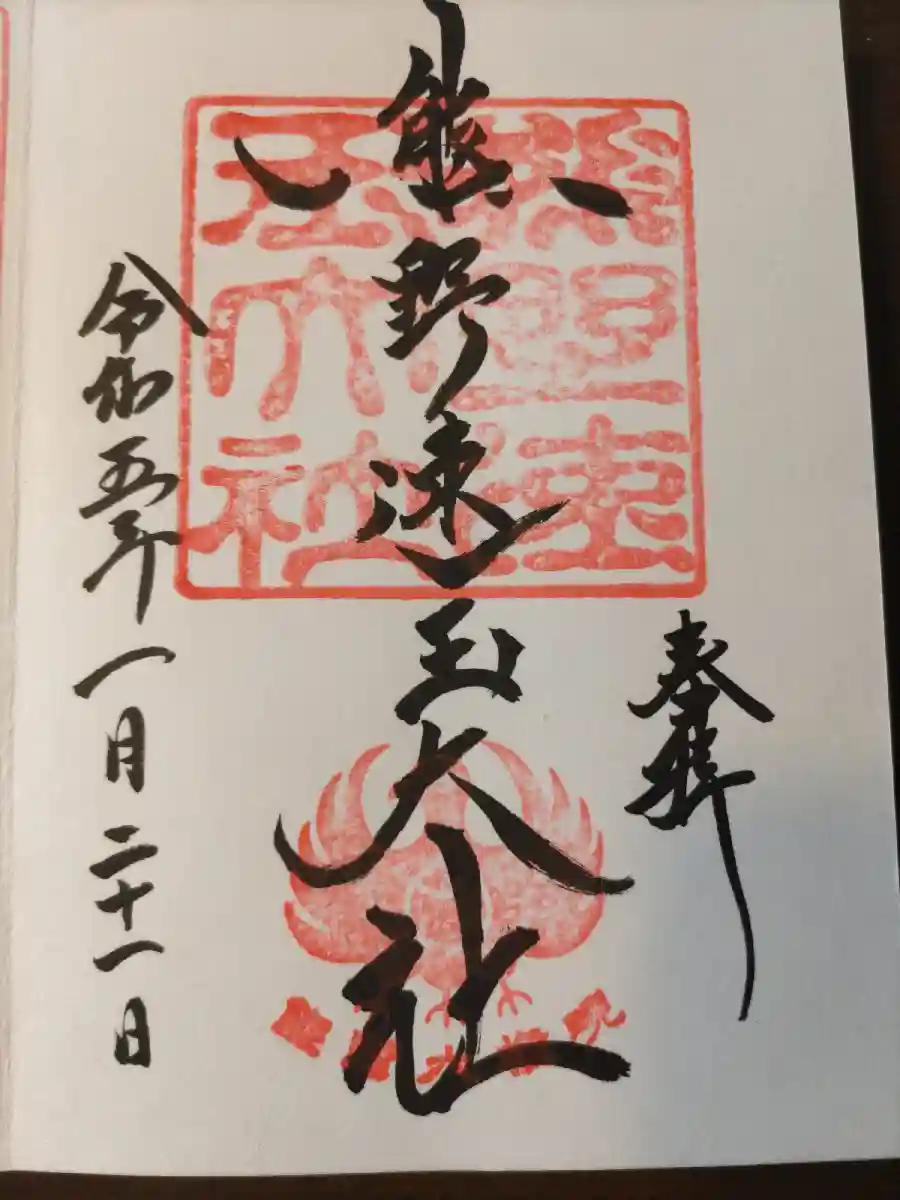 奉拝
熊野速玉大社
令和五年一月二十一日
熊野速玉大社